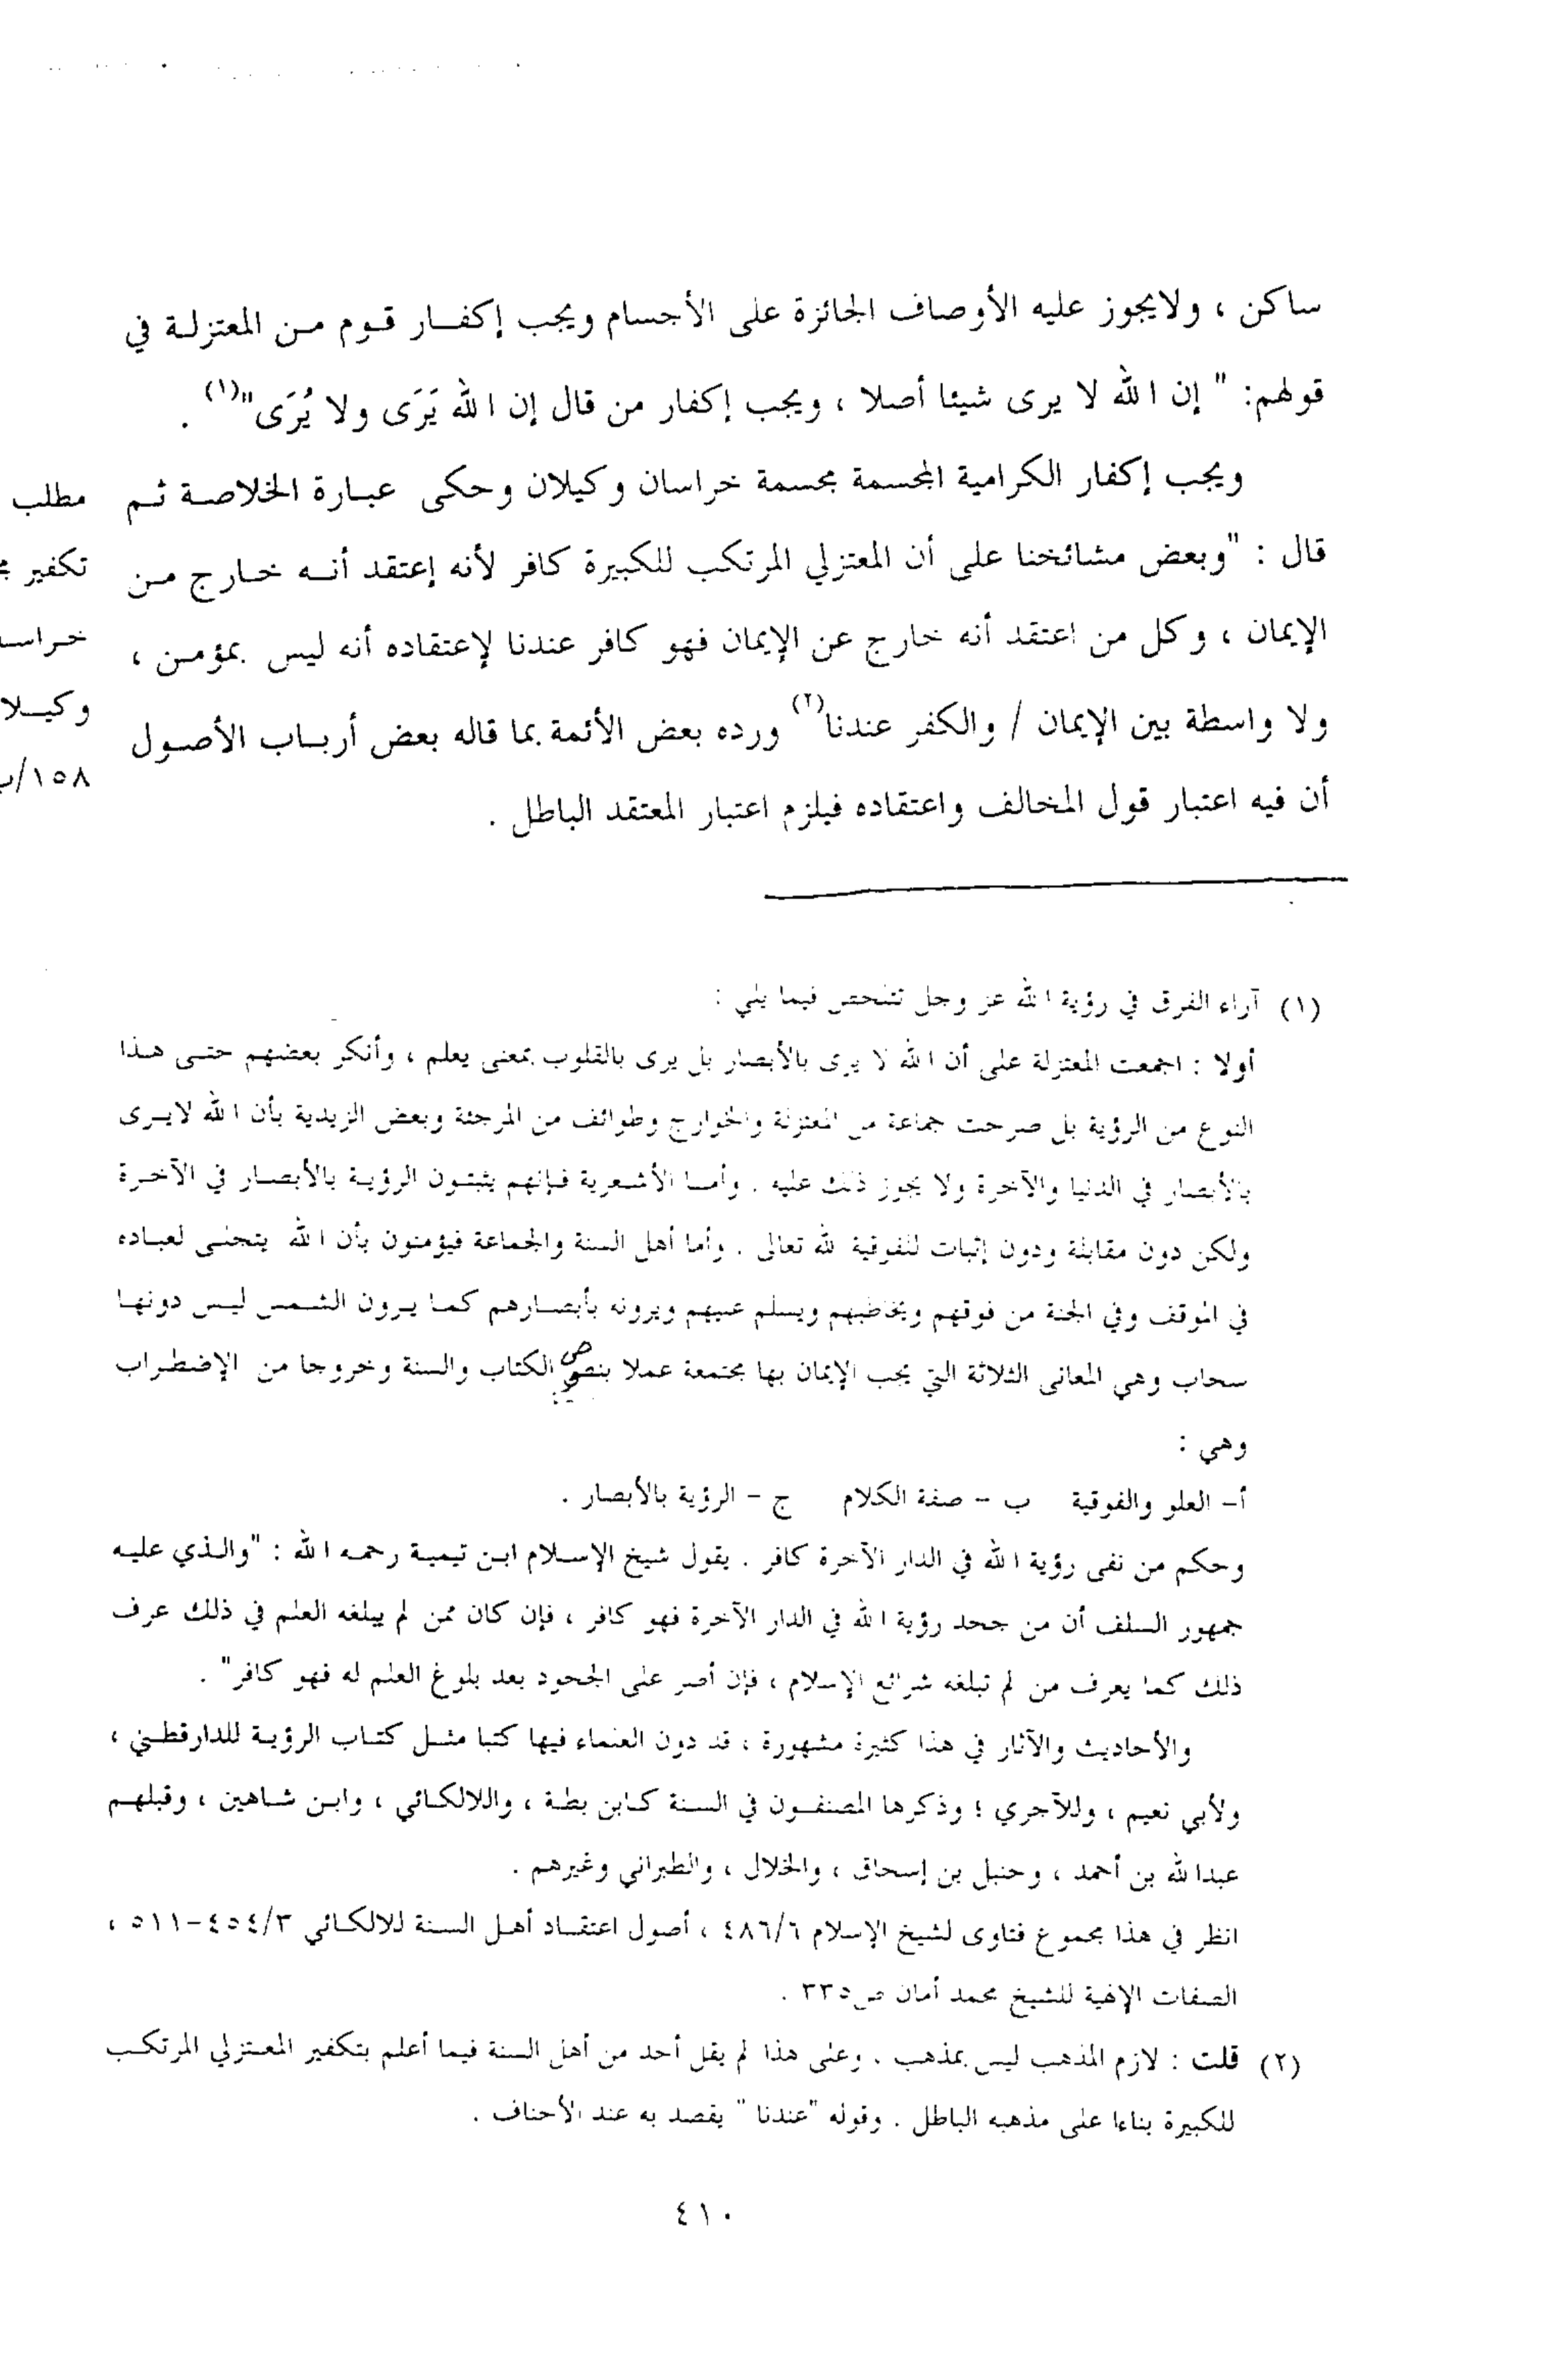 ساكن ، ولايجوز عليه الأوصاف الجائزة على الأجسام ويجب إكفــار قـوم مـن المعتزلـة في
قولهم: " إن الله لا يرى شيئا أصلا ، ويجب إكفار من قال إن الله يَرَى ولا يُرَى"(١) .
ويجب إكفار الكرامية المجسمة مجسمة خراسان وكيلان وحكى عبـارة الخلاصـة ثـم
قال : "وبعض مشائخنا على أن المعتزلي المرتكب للكبيرة كافر لأنه إعتقد أنـه خـارج مـن
الإيمان ، وكل من اعتقد أنه خارج عن الإيمان فهو كافر عندنا لإعتقاده أنه ليس بمؤمـن ،
ولا واسطة بين الإيمان / والكفر عندنا(٢) ورده بعض الأئمة بما قاله بعض أربـاب الأصـول
أن فيه اعتبار قول المخالف واعتقاده فيلزم اعتبار المعتقد الباطل .
مطلب
تكفير
خـراسـ
وكيـلا
١٥٨/ب
(١) آراء الفرق في رؤية الله عز وجل تتلخص فيما يلي :
أولا : اجمعت المعتزلة على أن الله لا يرى بالأبصار بل يرى بالقلوب بمعنى يعلم ، وأنكر بعضهم حتـى هـذا
النوع من الرؤية بل صرحت جماعة من المعتزلة والخوارج وطوائف من المرجئة وبعض الزيدية بأن الله لايـرى
بالأبصار في الدنيا والآخرة ولا يجوز ذلك عليه . وأمـا الأشـعرية فـإنهم يثبتـون الرؤيـة بالأبصـار في الآخـرة
ولكن دون مقابلة ودون إثبات للفوقية لله تعالى . وأما أهل السنة والجماعة فيؤمنون بأن الله يتجلـى لعبـاده
في الموقف وفي الجنة من فوقهم ويخاطبهم ويسلم عليهم ويرونه بأبصـارهم كمـا يـرون الشـمس ليـس دونهـا
سحاب وهي المعانى الثلاثة التي يجب الإيمان بها مجتمعة عملا بنصوص الكتاب والسنة وخروجا من الإضطـراب
وهي :
أ- العلو والفوقية ب - صفة الكلام ج - الرؤية بالأبصار .
وحكم من نفى رؤية الله في الدار الآخرة كافر . يقول شيخ الإسـلام ابـن تيميـة رحمـه الله : "والـذي عليـه
جمهور السلف أن من جحد رؤية الله في الدار الآخرة فهو كافر ، فإن كان ممن لم يبلغه العلم في ذلك عرف
ذلك كما يعرف من لم تبلغه شرائع الإسلام ، فإن أصر على الجحود بعد بلوغ العلم له فهو كافر" .
والأحاديث والآثار في هذا كثيرة مشهورة ، قد دون العلماء فيها كتبا مثـل كتـاب الرؤيـة للدارقطـني ،
ولأبي نعيم ، وللآجري ؛ وذكرها المصنفـون في السـنة كـابن بطـة ، واللالكـائي ، وابـن شـاهين ، وقبلهـم
عبدالله بن أحمد ، وحنبل بن إسحاق ، والخلال ، والطبراني وغيرهم .
انظر في هذا مجموع فتاوى لشيخ الإسلام ٤٨٦/٦ ، أصول اعتقـاد أهـل السـنة للالكـائي ٤٥٤/٣-٥١١ ،
الصفات الإلهية للشيخ محمد أمان ص٣٣٥ .
(٢) قلت : لازم المذهب ليس بمذهب . وعلى هذا لم يقل أحد من أهل السنة فيما أعلم بتكفير المعـتزلي المرتكـب
للكبيرة بناءا على مذهبه الباطل . وقوله "عندنا " يقصد به عند الأحناف .
٤١٠